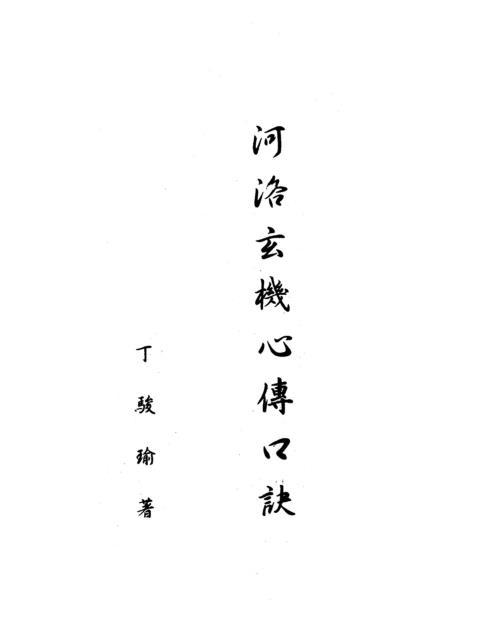 河洛玄機心傳口訣
丁駿瑜著